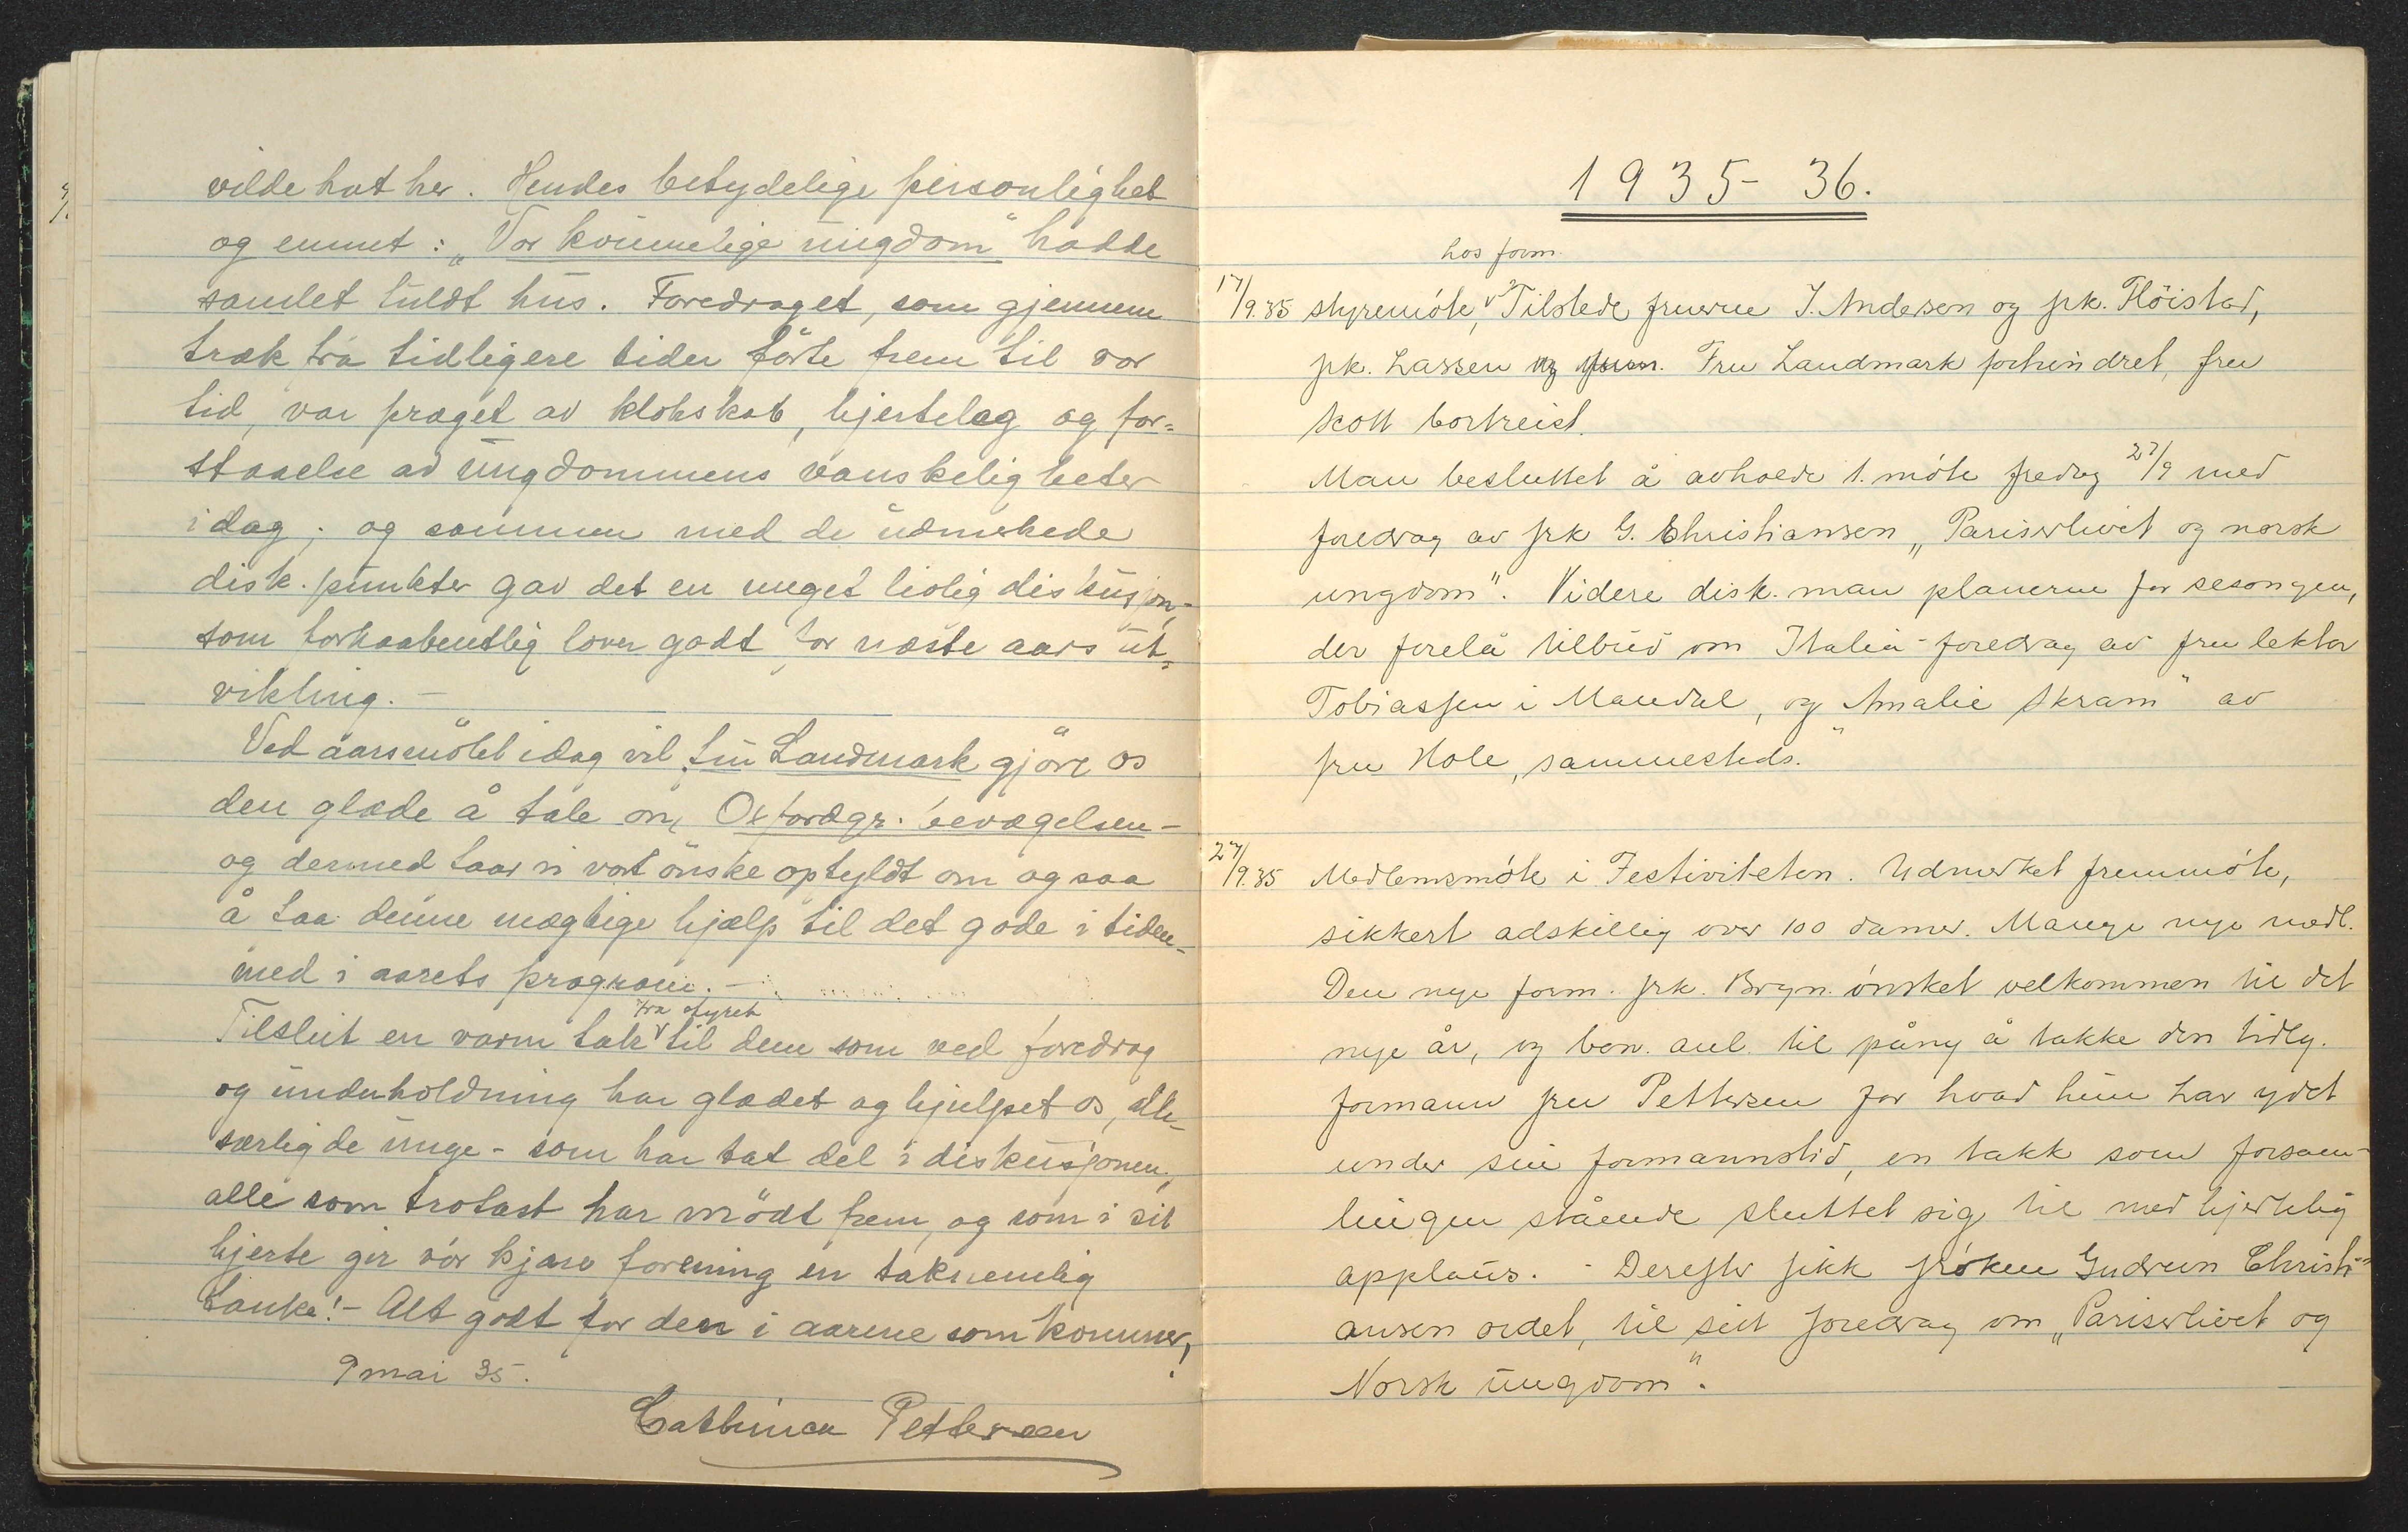 vilde hat her. Hendes betydelige personlighet
og emnet: „Vor kvinnelige ungdom" hadde
samlet fuldt hus. Foredraget, som gjennem
træk fra tidligere tider förte frem til vor
tid, var præget av klokskab, hjertelag og for=
staaelse av ungdommens vanskeligheter
idag; og sammen med de udmerkede
disk. punkter gav det en meget livlig diskusjon-
som forhaabentlig lover godt for næste aars ut-
vikling. -
Ved aarsmötet idag vil fru Landmark gjöre os
den glæde å tale om Oxfordgr. bevægelsen -
og dermed faar vi vort önske opfyldt om ogsaa
å faa denne mægtige hjælp til det gode i tiden-
med i aarets program. -
fra styret
Tilslut en varm tak til dem som ved foredrag
og underholdning har glædet og hjulpet os, alle-
særlig de unge - som har tat del i diskusjonen,
alle som trofast har mödt frem, og som i sit
hjerte gir vór kjære forening en taknemlig
tanke! - Alt godt for den i aarene som kommer,
9 mai 35.
Cathinca Pettersen
1935-36.
hos form.
17/9.35 styremöte, Tilstede fruerne J. Andersen og frk. Flöistad,
frk. Lassen og form. Fru Landmark forhindret, fru
Skott bortreist.
Man besluttet å avholde 1. möte fredag 27/9 med
foredrag av frk G. Christiansen „Pariserlivet og norsk
ungdom". Videre disk. man planerne for sesongen,
der forelå tilbud om Italia-foredrag av fru lektor
Tobiassen i Mandal, og „Amalie Skram" av
fru Hole, sammesteds.
27/9.35 Medlemsmöte i Festiviteten. Udmerket fremmöte,
sikkert adskillig over 100 damer. Mange nye medl.
Den nye form. frk. Bryn. önsket velkommen til det
nye år, og ben. anl. til påny å takke den tidlg.
formann fru Pettersen for hvad hun har ydet
under sin formannstid, en takk som forsam-
lingen stående sluttet sig til med hjertelig
applaus. - Derefter fikk fröken Gudrun Christi-
ansen ordet, til sitt foredrag om „Pariserlivet og
Norsk ungdom".